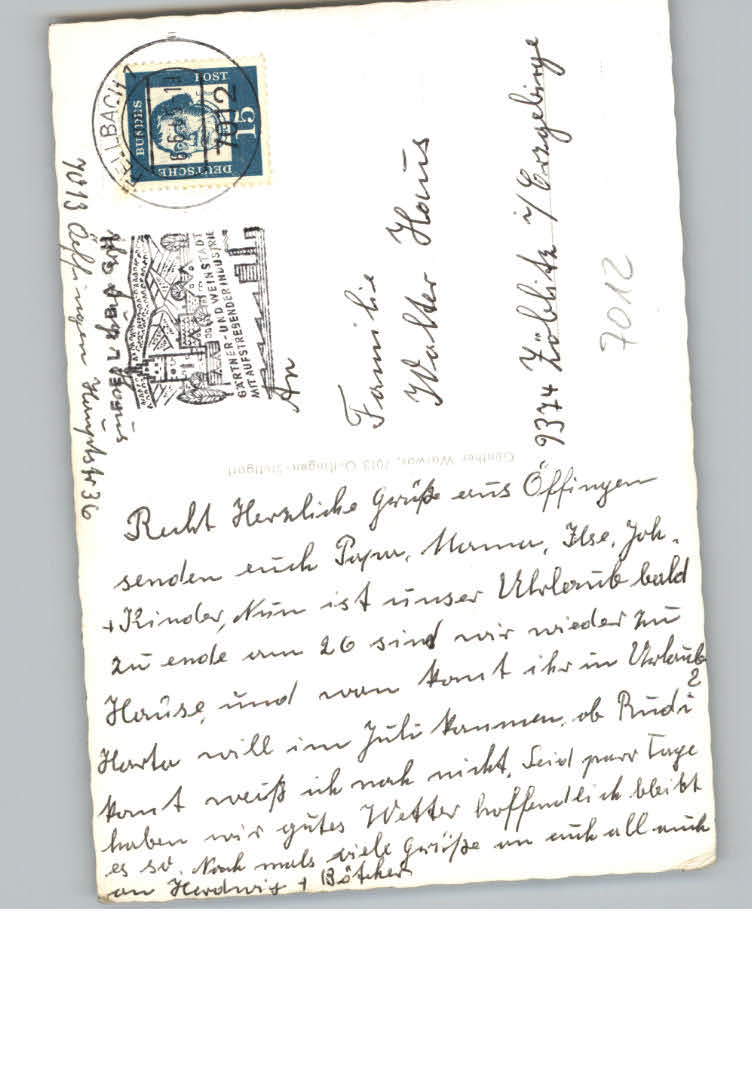 Recht Herzliche Grüße aus Öffingen
senden euch Papa, Mama, Ilse, Joh.
+ Kinder, Nun ist unser Uhrlaub bald
zu ende am 26 sind wir wieder zu
Hause, und wan komt ihr in Uhrlaub
?
Harta will im Juli kommen, ob Rudi
komt weiß ich noch nicht, Seid parr Tage
haben wir gutes Wetter hoffendlich bleibt
es so. Noch mals viele Grüße an euch all auch
an Herdwig + Bötcher
An
Familie
Walter Haus
9374 Zöblitz i/Erzgebirge
7012
7013 Öffingen Hauptstr 36
Günther Warwas, 7013 Oeffingen-Stuttgart
FELLBACH
GÄRTNER- UND WEINSTADT
MIT AUFSTREBENDER INDUSTRIE
FELLBACH
7012
DEUTSCHE
BUNDES
POST
15